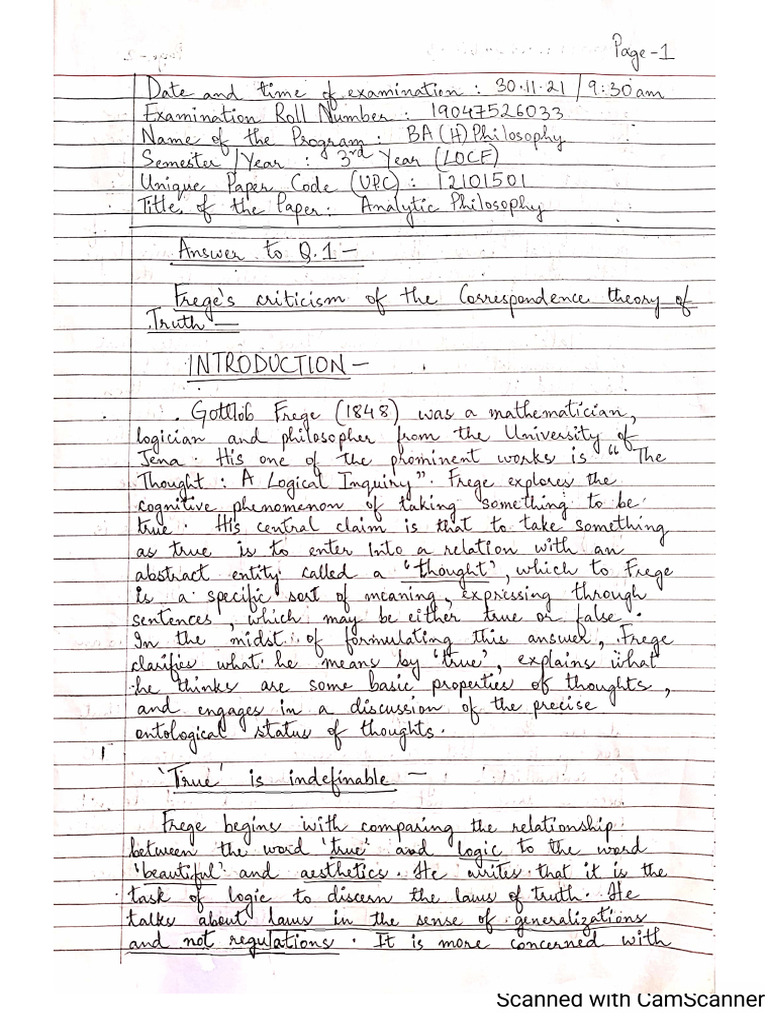 Page-1
Date and time of examination : 30.11.21 / 9:30am
Examination Roll Number : 19047526033
Name of the Program : BA(H) Philosophy
Semester / Year : 3rd Year (LOCF)
Unique Paper Code (UPC) : 12101501
Title of the Paper : Analytic Philosophy
Answer to Q.1 –
Frege's criticism of the Correspondence theory of
Truth –
INTRODUCTION –
Gottlob Frege (1848) was a mathematician,
logician and philosopher from the University of
Jena. His one of the prominent works is "The
Thought : A Logical Inquiry". Frege explores the
cognitive phenomenon of taking something to be
true. His central claim is that to take something
as true is to enter into a relation with an
abstract entity called a 'thought', which to Frege
is a specific sort of meaning, expressing through
sentences, which may be either true or false.
In the midst of formulating this answer, Frege
clarifies what he means by 'true', explains what
he thinks are some basic properties of thoughts,
and engages in a discussion of the precise
ontological status of thoughts.
'True' is indefinable –
Frege begins with comparing the relationship
between the word 'true' and logic to the word
'beautiful' and aesthetics. He writes that it is the
task of logic to discern the laws of truth. He
talks about laws in the sense of generalizations
and not regulations. It is more concerned with
Scanned with CamScanner